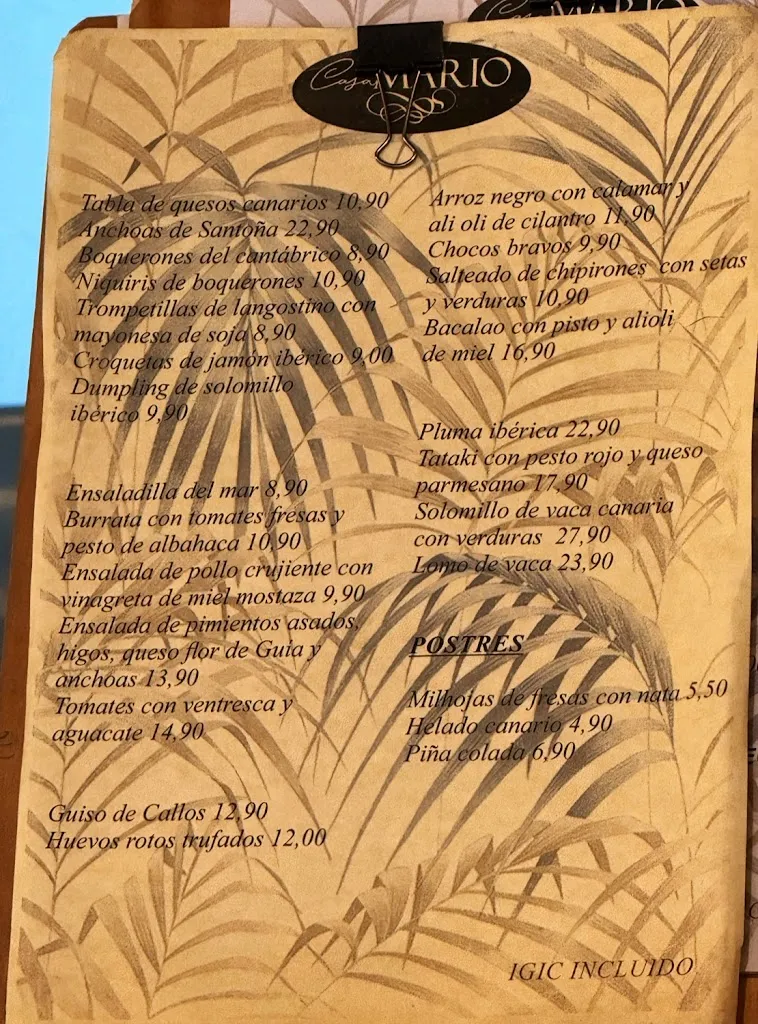 Casa MARIO
Tabla de quesos canarios 10,90
Anchoas de Santoña 22,90
Boquerones del cantábrico 8,90
Niquiris de boquerones 10,90
Trompetillas de langostino con
mayonesa de soja 8,90
Croquetas de jamón ibérico 9,00
Dumpling de solomillo
ibérico 9,90
Ensaladilla del mar 8,90
Burrata con tomates fresas y
pesto de albahaca 10,90
Ensalada de pollo crujiente con
vinagreta de miel mostaza 9,90
Ensalada de pimientos asados,
higos, queso flor de Guía y
anchoas 13,90
Tomates con ventresca y
aguacate 14,90
Guiso de Callos 12,90
Huevos rotos trufados 12,00
Arroz negro con calamar y
ali oli de cilantro 11,90
Chocos bravos 9,90
Salteado de chipirones con setas
y verduras 10,90
Bacalao con pisto y alioli
de miel 16,90
Pluma ibérica 22,90
Tataki con pesto rojo y queso
parmesano 17,90
Solomillo de vaca canaria
con verduras 27,90
Lomo de vaca 23,90
POSTRES
Milhojas de fresas con nata 5,50
Helado canario 4,90
Piña colada 6,90
IGIC INCLUIDO